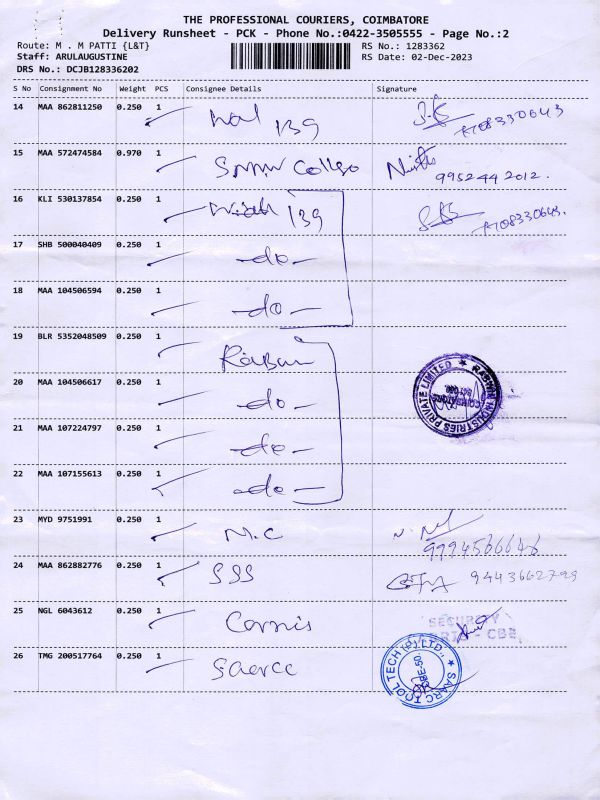 THE PROFESSIONAL COURIERS, COIMBATORE
Delivery Runsheet - PCK - Phone No.:0422-3505555 - Page No.:2
Route: M . M PATTI {L&T} RS No.: 1283362
Staff: ARULAUGUSTINE RS Date: 02-Dec-2023
DRS No.: DCJB128336202
S No Consignment No Weight PCS Consignee Details Signature
14 MAA 862811250 0.250 1 139
15 MAA 572474584 0.970 1 9952442012.
16 KLI 530137854 0.250 1 139
17 SHB 500040409 0.250 1 -do-
18 MAA 104506594 0.250 1 -do-
19 BLR 5352048509 0.250 1
20 MAA 104506617 0.250 1 -do-
21 MAA 107224797 0.250 1 -do-
22 MAA 107155613 0.250 1 -do-
RASHIN INDUSTRIES PRIVATE LIMITED
23 MYD 9751991 0.250 1 M.C
24 MAA 862882776 0.250 1 SSS 9443662799
25 NGL 6043612 0.250 1
SECURITY
- CBE
26 TMG 200517764 0.250 1
SAARC TOOL TECH (P) LTD.,